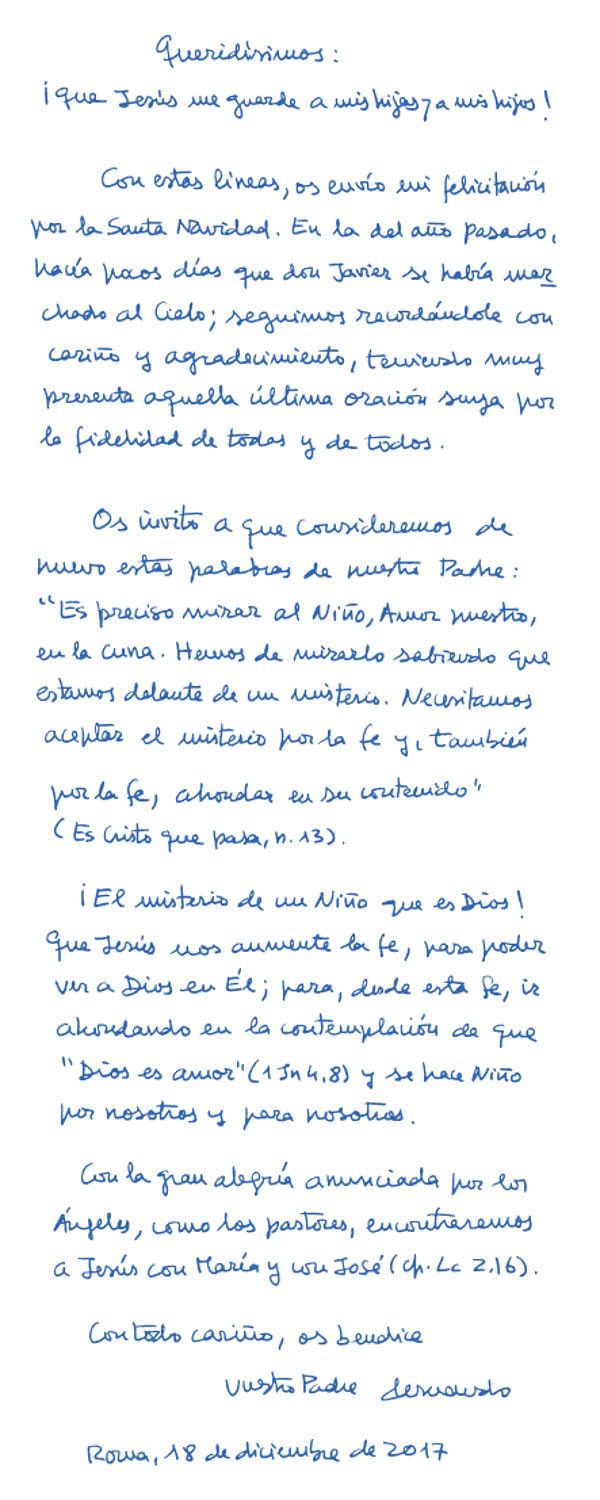 Queridísimos:
¡que Jesús me guarde a mis hijas y a mis hijos!
Con estas líneas, os envío mi felicitación
por la Santa Navidad. En la del año pasado,
hacía pocos días que don Javier se había mar
chado al Cielo; seguimos recordándole con
cariño y agradecimiento, teniendo muy
presente aquella última oración suya por
la fidelidad de todas y de todos.
Os invito a que consideremos de
nuevo estas palabras de nuestro Padre:
"Es preciso mirar al Niño, Amor nuestro,
en la cuna. Hemos de mirarlo sabiendo que
estamos delante de un misterio. Necesitamos
aceptar el misterio por la fe y, también
por la fe, ahondar en su contenido"
(Es Cristo que pasa, n. 13).
¡El misterio de un Niño que es Dios!
Que Jesús nos aumente la fe, para poder
ver a Dios en Él; para, desde esta fe, ir
ahondando en la contemplación de que
"Dios es amor" (1 Jn 4,8) y se hace Niño
por nosotros y para nosotros.
Con la gran alegría anunciada por los
Ángeles, como los pastores, encontraremos
a Jesús con María y con José (cfr. Lc 2,16).
Con todo cariño, os bendice
vuestro Padre Fernando
Roma, 18 de diciembre de 2017